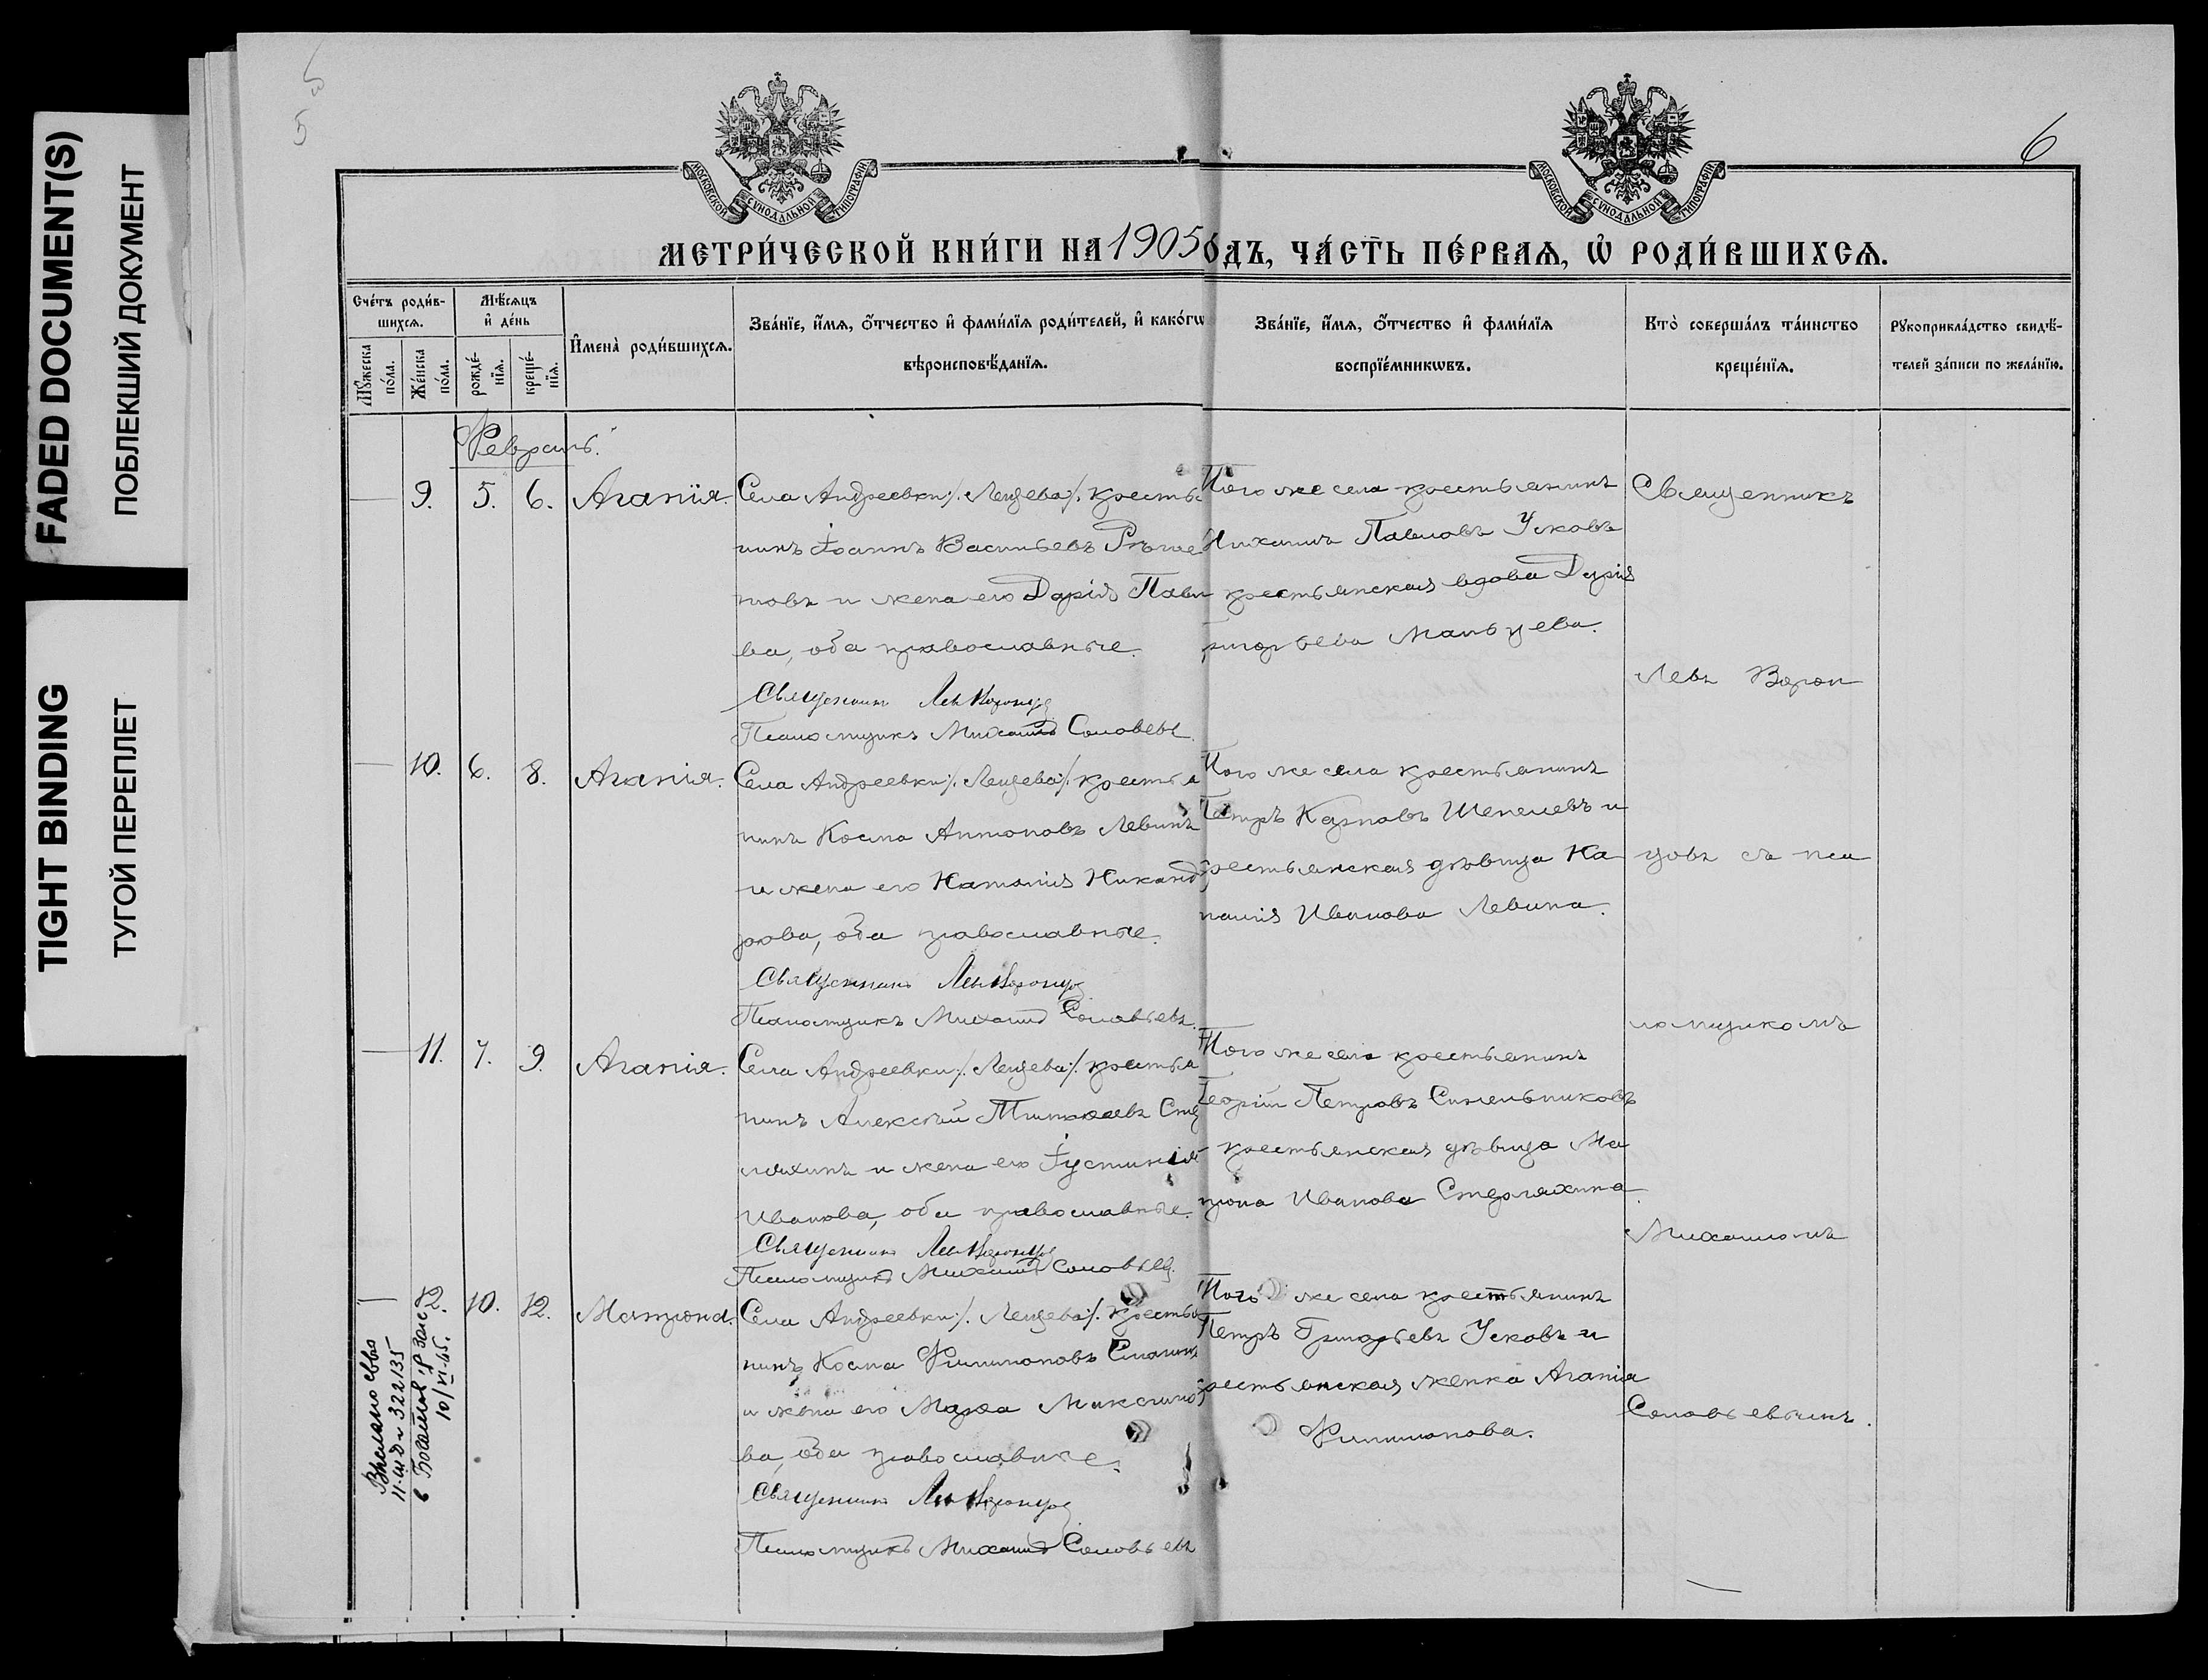 FADED DOCUMENT(S)
ПОБЛЕКШИЙ ДОКУМЕНТ
TIGHT BINDING
ТУГОЙ ПЕРЕПЛЕТ
5
6
МОСКОВСКОЙ СѴНОДАЛЬНОЙ ТИПОГРАФІИ
МОСКОВСКОЙ СѴНОДАЛЬНОЙ ТИПОГРАФІИ
МЕТРИ́ЧЕСКОЙ КНИ́ГИ НА 1905 ОДЪ, ЧА́СТЬ ПЕ́РВАѦ, Ѡ РОДИ́ВШИХСѦ.
Сче́тъ роди́в-
шихсѧ.
Мꙋ́жеска по́ла.
Же́нска по́ла.
Мѣ́сѧцъ
и де́нь
рожде́-
нїѧ.
креще́-
нїѧ.
Имена̀ роди́вшихсѧ.
Зва́нїе, и́мѧ, о́тчество и фами́лїѧ роди́телей, и како́гѡ
вѣроисповѣ́данїѧ.
Зва́нїе, и́мѧ, о́тчество и фами́лїѧ
воспрїе́мникѡвъ.
Кто̀ соверша́лъ та́инство
креще́нїѧ.
Рꙋкоприкла́дство свидѣ́-
телей за́писи по жела́нїю.
Февраль.
9. 5. 6. Агапія.
Села Андреевки /. Лещева /. крестья
нинъ Іоаннъ Васильевъ
новъ и жена его Дарія Павл
ва, оба православные.
Священникъ Левъ Воронцов
Псаломщикъ Михаилъ Соловьевъ.
Того же села крестьянинъ
Михаилъ Павловъ Усковъ
крестьянская вдова Дарія
Григорьева Мальцева.
Священникъ
Левъ Ворон
10. 6. 8. Агапія.
Села Андреевки /. Лещева /. крестья
нинъ Косма Антоновъ Левинъ
и жена его Наталія Никанд
рова, оба православные.
Священникъ Левъ Воронцов
Псаломщикъ Михаилъ Соловьевъ.
Того же села крестьянинъ
Петръ Карповъ Шепелевъ и
крестьянская дѣвица На
талія Иванова Левина.
цовъ съ пса
ломщикомъ
11. 7. 9. Агапія.
Села Андреевки /. Лещева /. крестья
нинъ Алексѣй Тимоѳеевъ Сте
ляхинъ и жена его Іустинія
Иванова, оба православные.
Священникъ Левъ Воронцов
Псаломщикъ Михаилъ Соловьев.
Того же села крестьянинъ
Георгій Петровъ Синельниковъ
крестьянская дѣвица Ма
трона Иванова Стерляхина
Михаиломъ
12. 10. 12. Матрона.
Села Андреевки /. Лещева /. крестья
нинъ Косма Филипповъ
и жена его Марѳа Максимо
ва, оба православные.
Священникъ Левъ Воронцов
Псаломщикъ Михаилъ Соловьевъ
Того же села крестьянинъ
Петръ Григорьевъ Усковъ и
крестьянская женка Агапія
Филиппова.
Соловьевымъ.
Выслано св-во
11-ШД № 322135
в загс
10/VI-45.